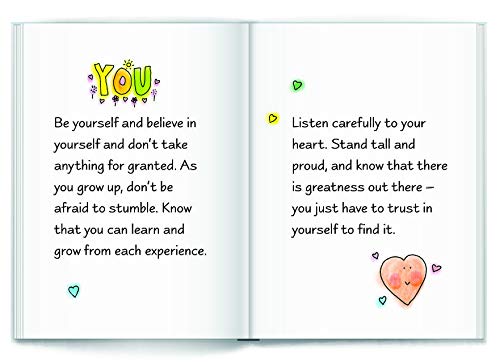 YOU
Be yourself and believe in
yourself and don't take
anything for granted. As
you grow up, don't be
afraid to stumble. Know
that you can learn and
grow from each experience.
Listen carefully to your
heart. Stand tall and
proud, and know that there
is greatness out there –
you just have to trust in
yourself to find it.